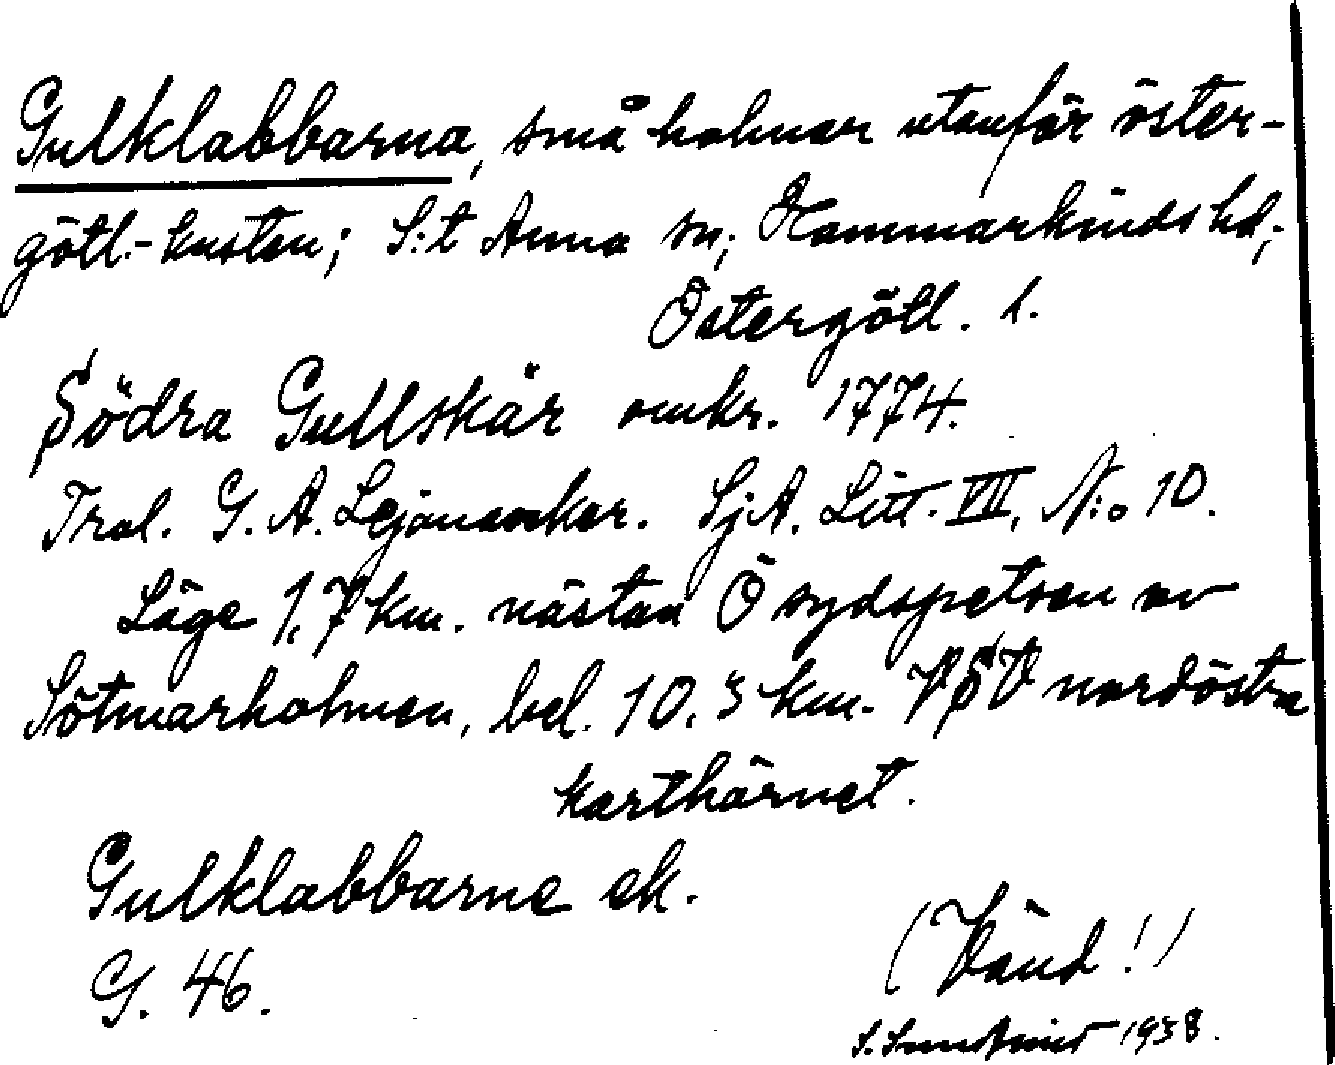 Gulklabbarna, små holmar utanför öster-
götl.-kusten; S:t Anna sn; Hammarkinds hd;
Östergötl. l.
Södra Gullskär omkr. 1774.
Tral. G. A. Lejonancker. SjA. Litt. VII, N:o 10.
Läge 1,7 km. nästan Ö sydspetsen av
Sötmarholmen, bel. 10.5 km. VSV nordöstra
karthörnet.
Gulklabbarne ek.
G. 46.
(Vänd!)
S. 1938.